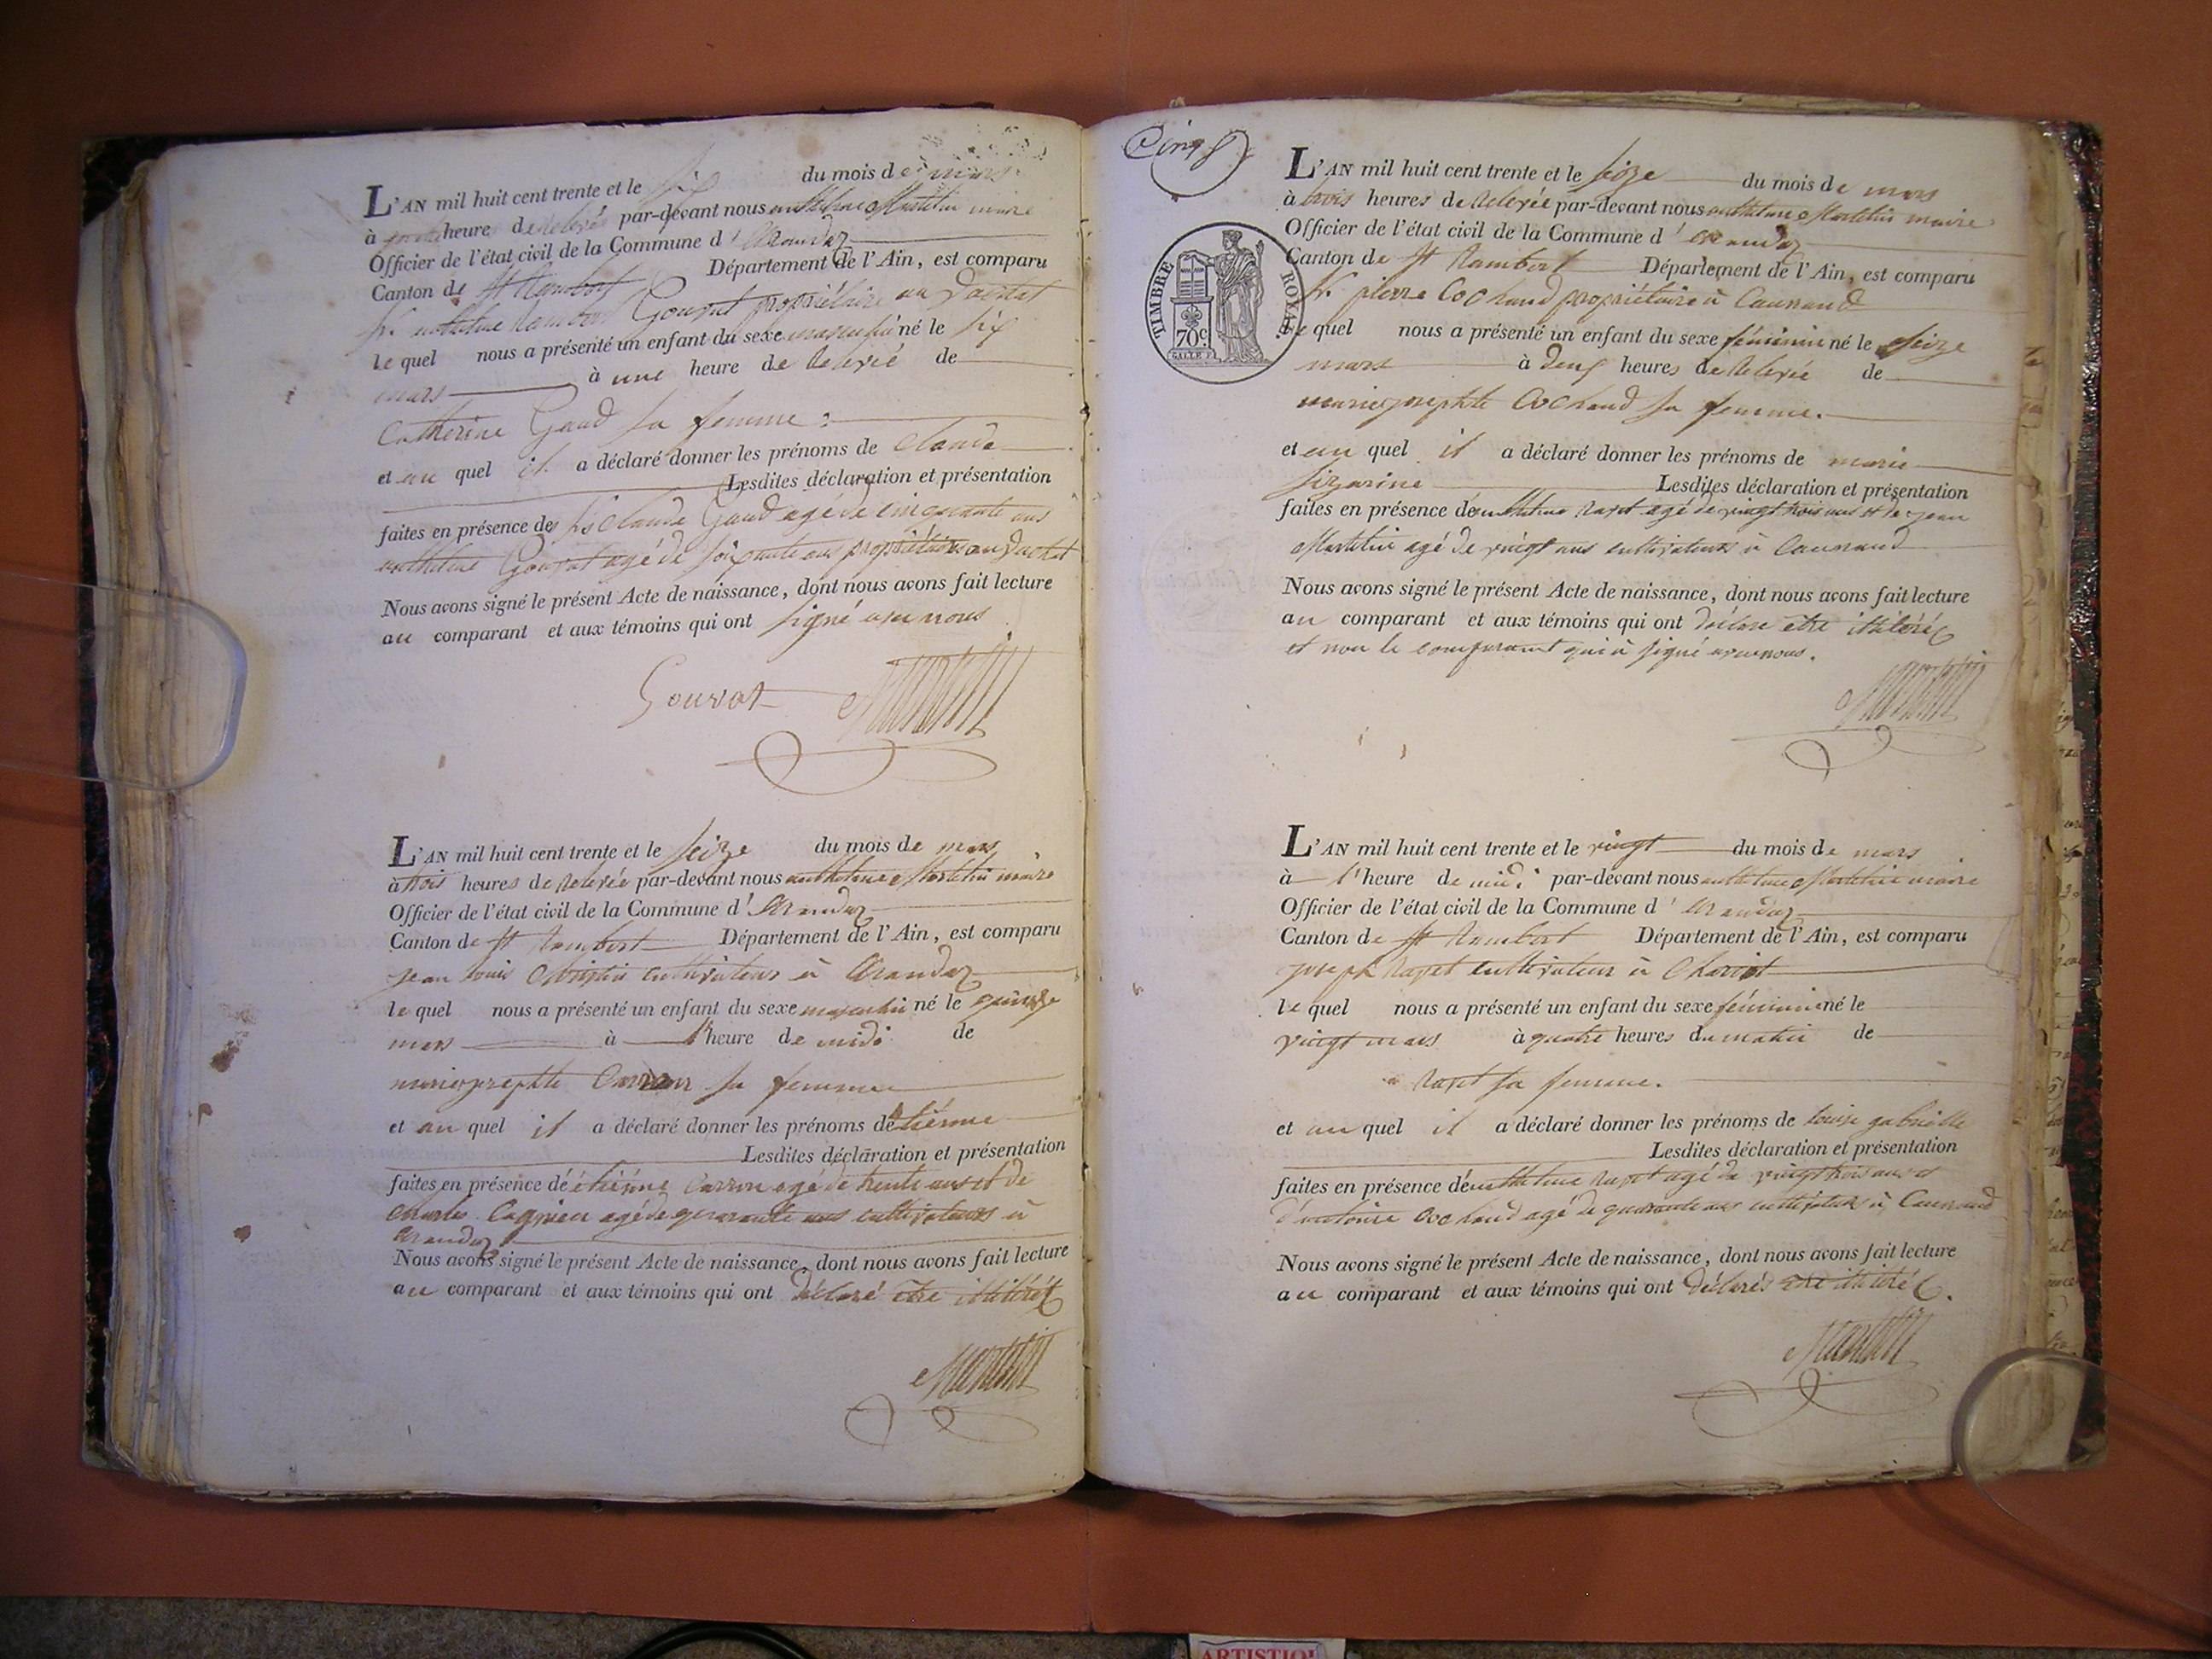 L'AN mil huit cent trente et le six du mois de mars
à quatre heures de relevée par-devant nous anthelme Martelin maire
Officier de l'état civil de la Commune d'Arandaz
Canton de St Rambert Département de l'Ain, est comparu
Sr. anthelme rambert Gouvat propriétaire au
le quel nous a présenté un enfant du sexe masculin né le six
mars à une heure de relevée de
Catherine Gaud sa femme
et au quel il a déclaré donner les prénoms de claude
Lesdites déclaration et présentation
faites en présence des Srs Claude Gaud agé de cinquante ans
anthelme Gouvat agé de soixante ans propriétaires au
Nous avons signé le présent Acte de naissance, dont nous avons fait lecture
au comparant et aux témoins qui ont signé avec nous
Gouvat Martelin
L'AN mil huit cent trente et le seize du mois de mars
à trois heures de relevée par-devant nous anthelme Martelin maire
Officier de l'état civil de la Commune d'Arandaz
Canton de St Rambert Département de l'Ain, est comparu
Jean louis cultivateur à Arandaz
le quel nous a présenté un enfant du sexe masculin né le quinze
mars à l'heure de midi de
marie josephte Carron sa femme
et au quel il a déclaré donner les prénoms détiénne
Lesdites déclaration et présentation
faites en présence dé étiénne Carron agé de trente ans et de
Charles agé de quarante ans cultivateurs à
Arandaz
Nous avons signé le présent Acte de naissance, dont nous avons fait lecture
au comparant et aux témoins qui ont déclaré etre illitéré
Martelin
Cinq
TIMBRE ROYAL
70c.
L'AN mil huit cent trente et le seize du mois de mars
à trois heures de relevée par-devant nous anthelme Martelin maire
Officier de l'état civil de la Commune d'Arandaz
Canton de St Rambert Département de l'Ain, est comparu
Sr. pierre Cochand propriétaire à Caunand
le quel nous a présenté un enfant du sexe féminin né le seize
mars à deux heures de relevée de
marie josephte Cochand sa femme.
et au quel il a déclaré donner les prénoms de marie
Lesdites déclaration et présentation
faites en présence dé anthelme ravet agé de vingt trois ans et de jean
Martelin agé de vingt ans cultivateurs à Caunand
Nous avons signé le présent Acte de naissance, dont nous avons fait lecture
au comparant et aux témoins qui ont déclare etre illitéré
et non le comparant qui à signé avec nous.
Martelin
L'AN mil huit cent trente et le vingt du mois de mars
à l'heure de midi par-devant nous anthelme Martelin maire
Officier de l'état civil de la Commune d'Arandaz
Canton de St Rambert Département de l'Ain, est comparu
joseph ravet cultivateur à
le quel nous a présenté un enfant du sexe féminin né le
vingt mars à quatre heures du matin de
ravet sa femme.
et au quel il a déclaré donner les prénoms de louise gabrielle
Lesdites déclaration et présentation
faites en présence dé anthelme ravet agé de vingt trois ans et
d'antoine Cochand agé de quarante ans cultivateurs à Caunand
Nous avons signé le présent Acte de naissance, dont nous avons fait lecture
au comparant et aux témoins qui ont déclarés etre illitéré.
Martelin